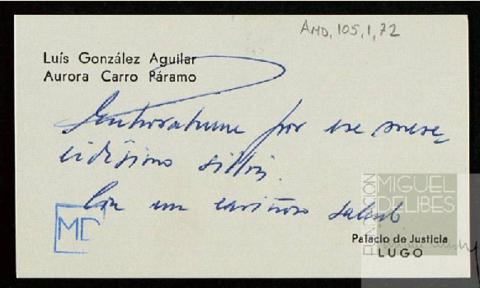 AMD, 105, 1, 72
Luís González Aguilar
Aurora Carro Páramo
Enhorabuena por ese mere-
cidísimo sillón.
Con un cariñoso saludo
MD
FUNDACIÓN
MIGUEL
DELIBES
Palacio de Justicia
LUGO